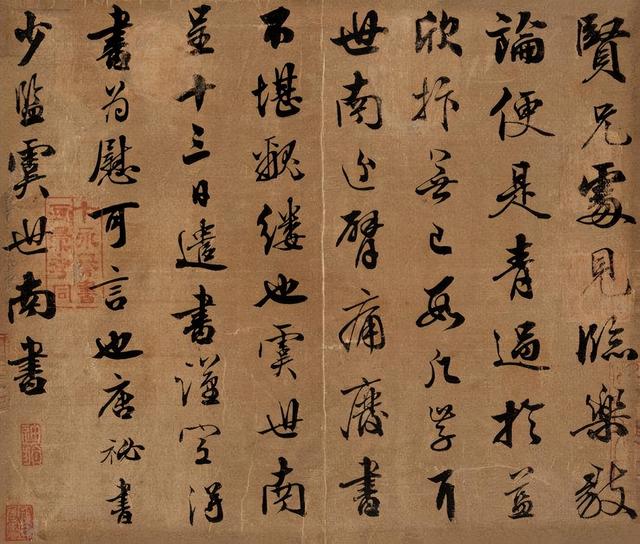 賢兄處見臨樂毅
論便是青過於藍
欣抃無已凡學耳
世南近臂痛廢書
不堪覶縷也虞世南
呈十三日遣書謹空得
書為慰可言也唐秘書
少監虞世南書